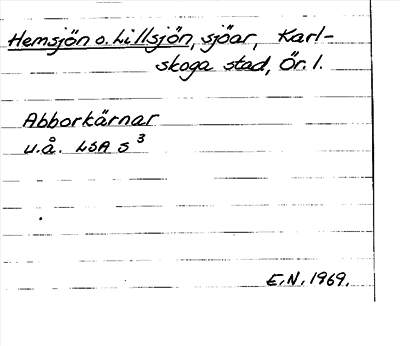 Hemsjön o. Lillsjön, sjöar, Karl-
skoga stad, Ör. l.
Abborkärnar
u.å. LSA S 3
E.N. 1969.